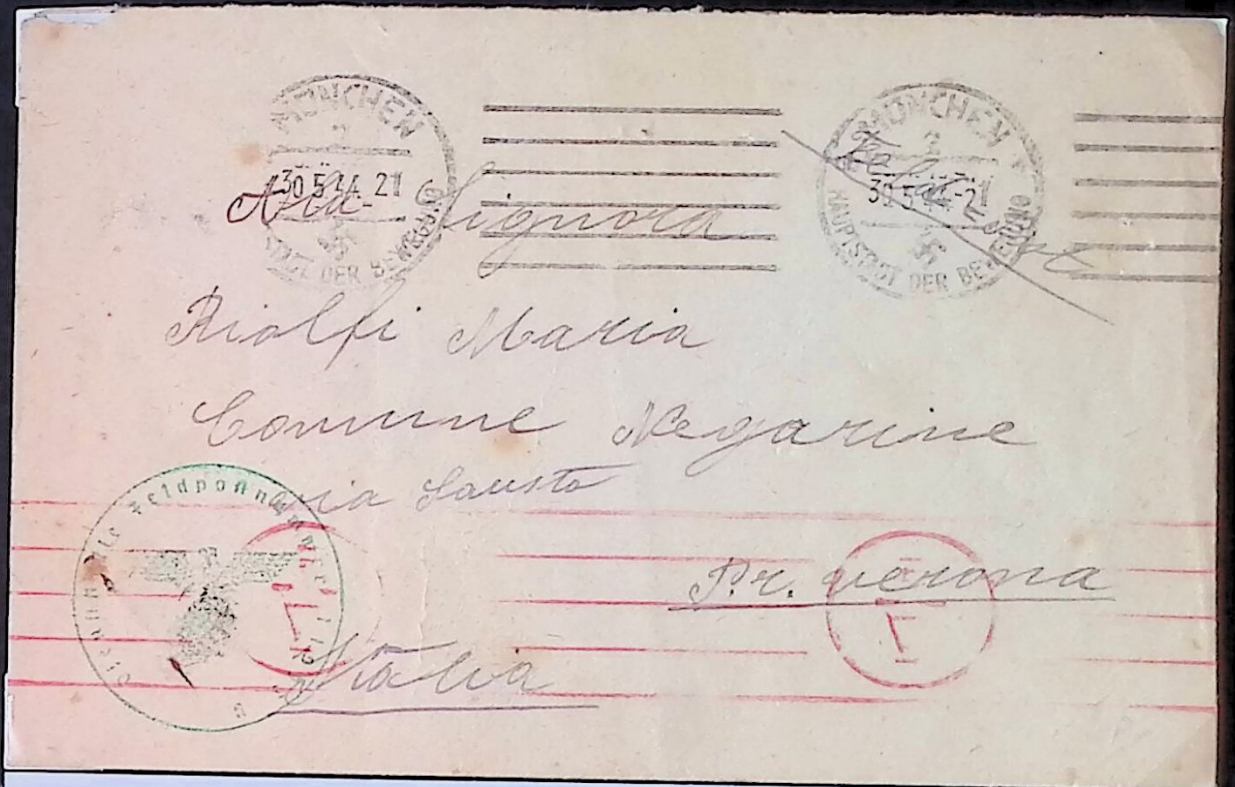 MÜNCHEN
2
30.5.44.-21
STADT DER BEWEGUNG
MÜNCHEN
2
30.5.44.-21
HAUPTSTADT DER BEWEGUNG
Feldpost
Alla Signora
Riolfi Maria
Comune Negarine
via
Pr. verona
Italia
Feldpostnummer
L